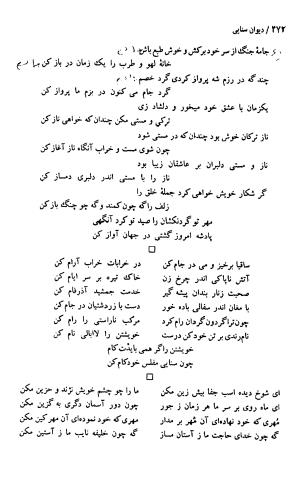 ۴۷۲ / دیوان سنایی
جامهٔ جنگ از سر خود برکش و خوش طبع باش
خانهٔ لهو و طرب را یک زمان در باز کن
چند گه در رزم شه پرواز کردی گرد خصم
گرد جام می کنون در بزم ما پرواز کن
یکزمان با عشق خود میخور و دلشاد زی
ترکی و مستی مکن چندان که خواهی ناز کن
ناز ترکان خوش بود چندان که در مستی شود
چون شوی مست و خراب آنگاه ناز آغاز کن
ناز و مستی دلبران بر عاشقان زیبا بود
ناز را با مستی اندر دلبری دمساز کن
گر شکار خویش خواهی کرد جملهٔ خلق را
زلف را گه چون کمند و گه چو چنگ باز کن
مهر تو گردنکشان را صید تو کرد آنگهی
پادشه امروز گشتی در جهان آواز کن
ساقیا برخیز و می در جام کن
در خرابات خراب آرام کن
آتش ناپاکی اندر چرخ زن
خاک تیره بر سر ایام کن
صحبت زنار بندان پیشه گیر
خدمت جمشید آذرفام کن
با مغان اندر سفالی باده خور
دست با زردشتیان در جام کن
چون ترا گردون گردان رام کرد
مرکب ناراستی را رام کن
نام رندی بر تن خود کن درست
خویشتن را لاابالی نام کن
خویشتن را گر همی بایدت کام
چون سنایی مفلس خودکام کن
ای شوخ دیده اسب جفا بیش زین مکن
ما را چو چشم خویش نژند و حزین مکن
ای ماه روی بر سر ما هر زمان ز جور
چون دور آسمان دگری به گزین مکن
مهری که خود نهاده‌ای آن مهر بر مدار
مهری که خود نموده‌ای آن مهر کین مکن
گه چون خدای حاجت ما ز آستان مساز
گه چون خلیفه نایب ما ز آستین مکن